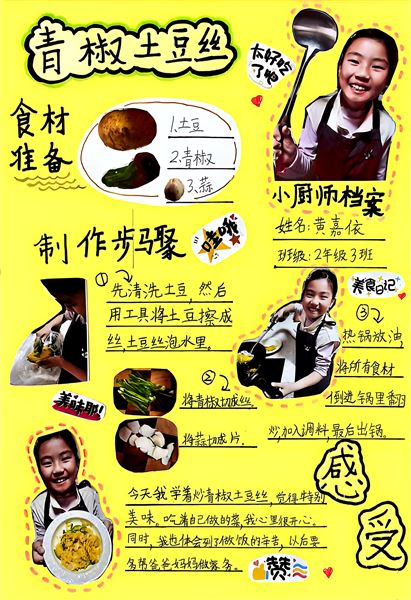 青椒土豆丝
太好吃
了吧
食材
准备
1.土豆
2.青椒
3.蒜
小厨师档案
姓名:黄嘉依
班级:2年级3班
制作步骤
哇哦
①
先清洗土豆,然后
用工具将土豆擦成
丝,土豆丝泡水里。
②
将青椒切成丝。
将蒜切成片。
美食日记
③
热锅放油,
将所有食材
倒进锅里翻
炒加入调料最后出锅。
美味耶!
感
受
今天我学着炒青椒土豆丝,觉得特别
美味。吃着自己做的菜,我心里很开心。
同时,我也体会到了做饭的辛苦,以后要
多帮爸爸妈妈做家务。
赞